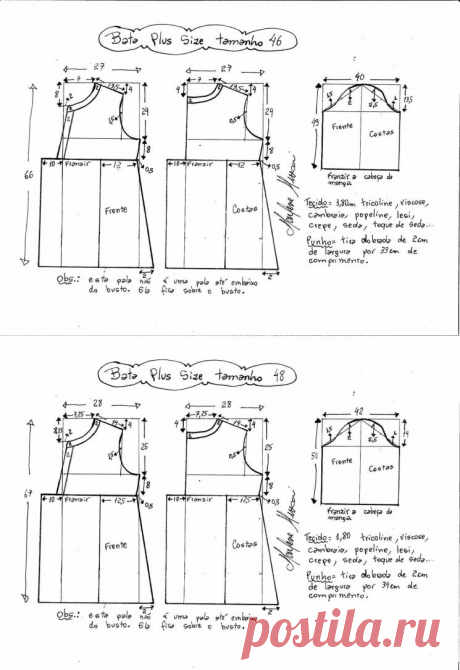 Bata Plus Size tamanho 46
27
27
40
7
13,5
4
7
13,5
4
4
8
2
2
1,5
24
0,5
24
1,5
2
2,5
1
13,5
49
Frente
Costas
66
8
8
10
Franzir
12
0,5
10
Franzir
12
0,5
Franzir a cabeça da manga
Frente
Costas
Marlene Mukai
Tecido = 1,80m tricoline, viscose,
cambraia, popeline, lesi,
crepe, seda, toque de seda...
Punho = tira dobrada de 2cm
de largura por 33cm de
comprimento.
2
2
Obs.: esta pala não é uma pala até embaixo
do busto. Ela fica sobre o busto.
Bata Plus Size tamanho 48
28
28
42
7,25
14
4
7,25
14
4
4
8,25
2
2
1,5
25
0,5
25
1,5
2
2,5
1
14
50
Frente
Costas
67
8
8
10
Franzir
12,5
0,5
10
Franzir
12,5
0,5
Franzir a cabeça da manga
Frente
Costas
Marlene Mukai
Tecido = 1,80 tricoline, viscose,
cambraia, popeline, lesi,
crepe, seda, toque de seda...
Punho = tira dobrada de 2cm
de largura por 34cm de
comprimento.
2
2
Obs.: esta pala não é uma pala até embaixo
do busto. Ela fica sobre o busto.
postila.ru